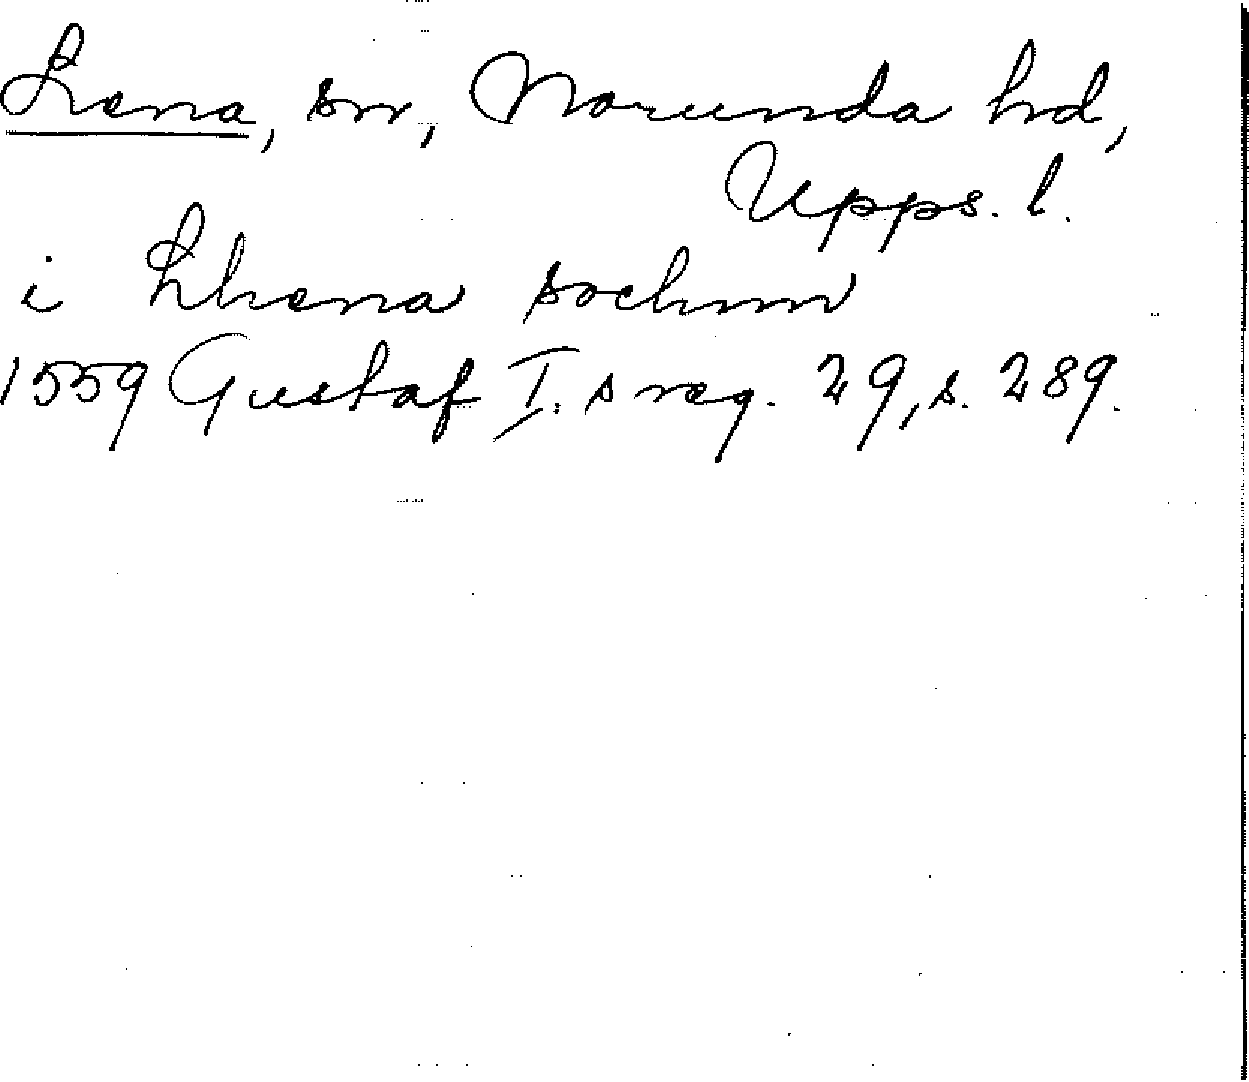 Lena, sn, Norunda hd,
Upps. l.
i Lhena sochnn
1559 Gustaf I. s reg. 29, s. 289.